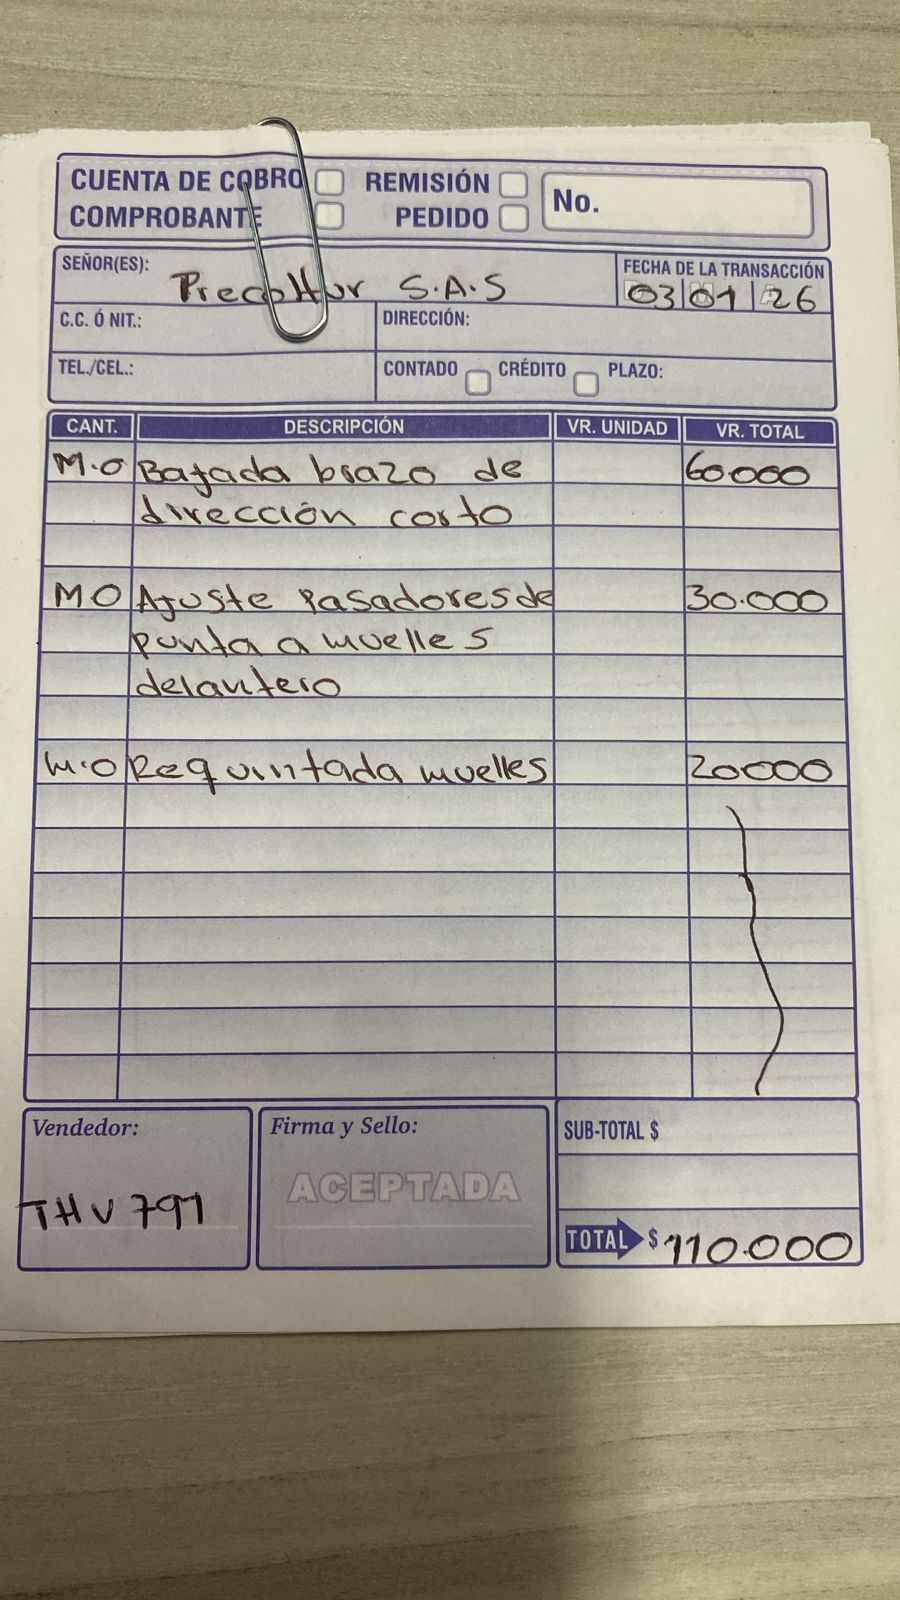 CUENTA DE COBRO REMISIÓN No.
COMPROBANTE PEDIDO
SEÑOR(ES): Precoltur S.A.S
FECHA DE LA TRANSACCIÓN
03 01 26
C.C. Ó NIT.: DIRECCIÓN:
TEL./CEL.: CONTADO CRÉDITO PLAZO:
CANT. DESCRIPCIÓN VR. UNIDAD VR. TOTAL
M.O Bajada brazo de 60.000
dirección corto
MO Ajuste pasadores de 30.000
punta a muelles
delantero
M.O Requintada muelles 20000
Vendedor: Firma y Sello: SUB-TOTAL $
ACEPTADA
THV 791
TOTAL $ 110.000